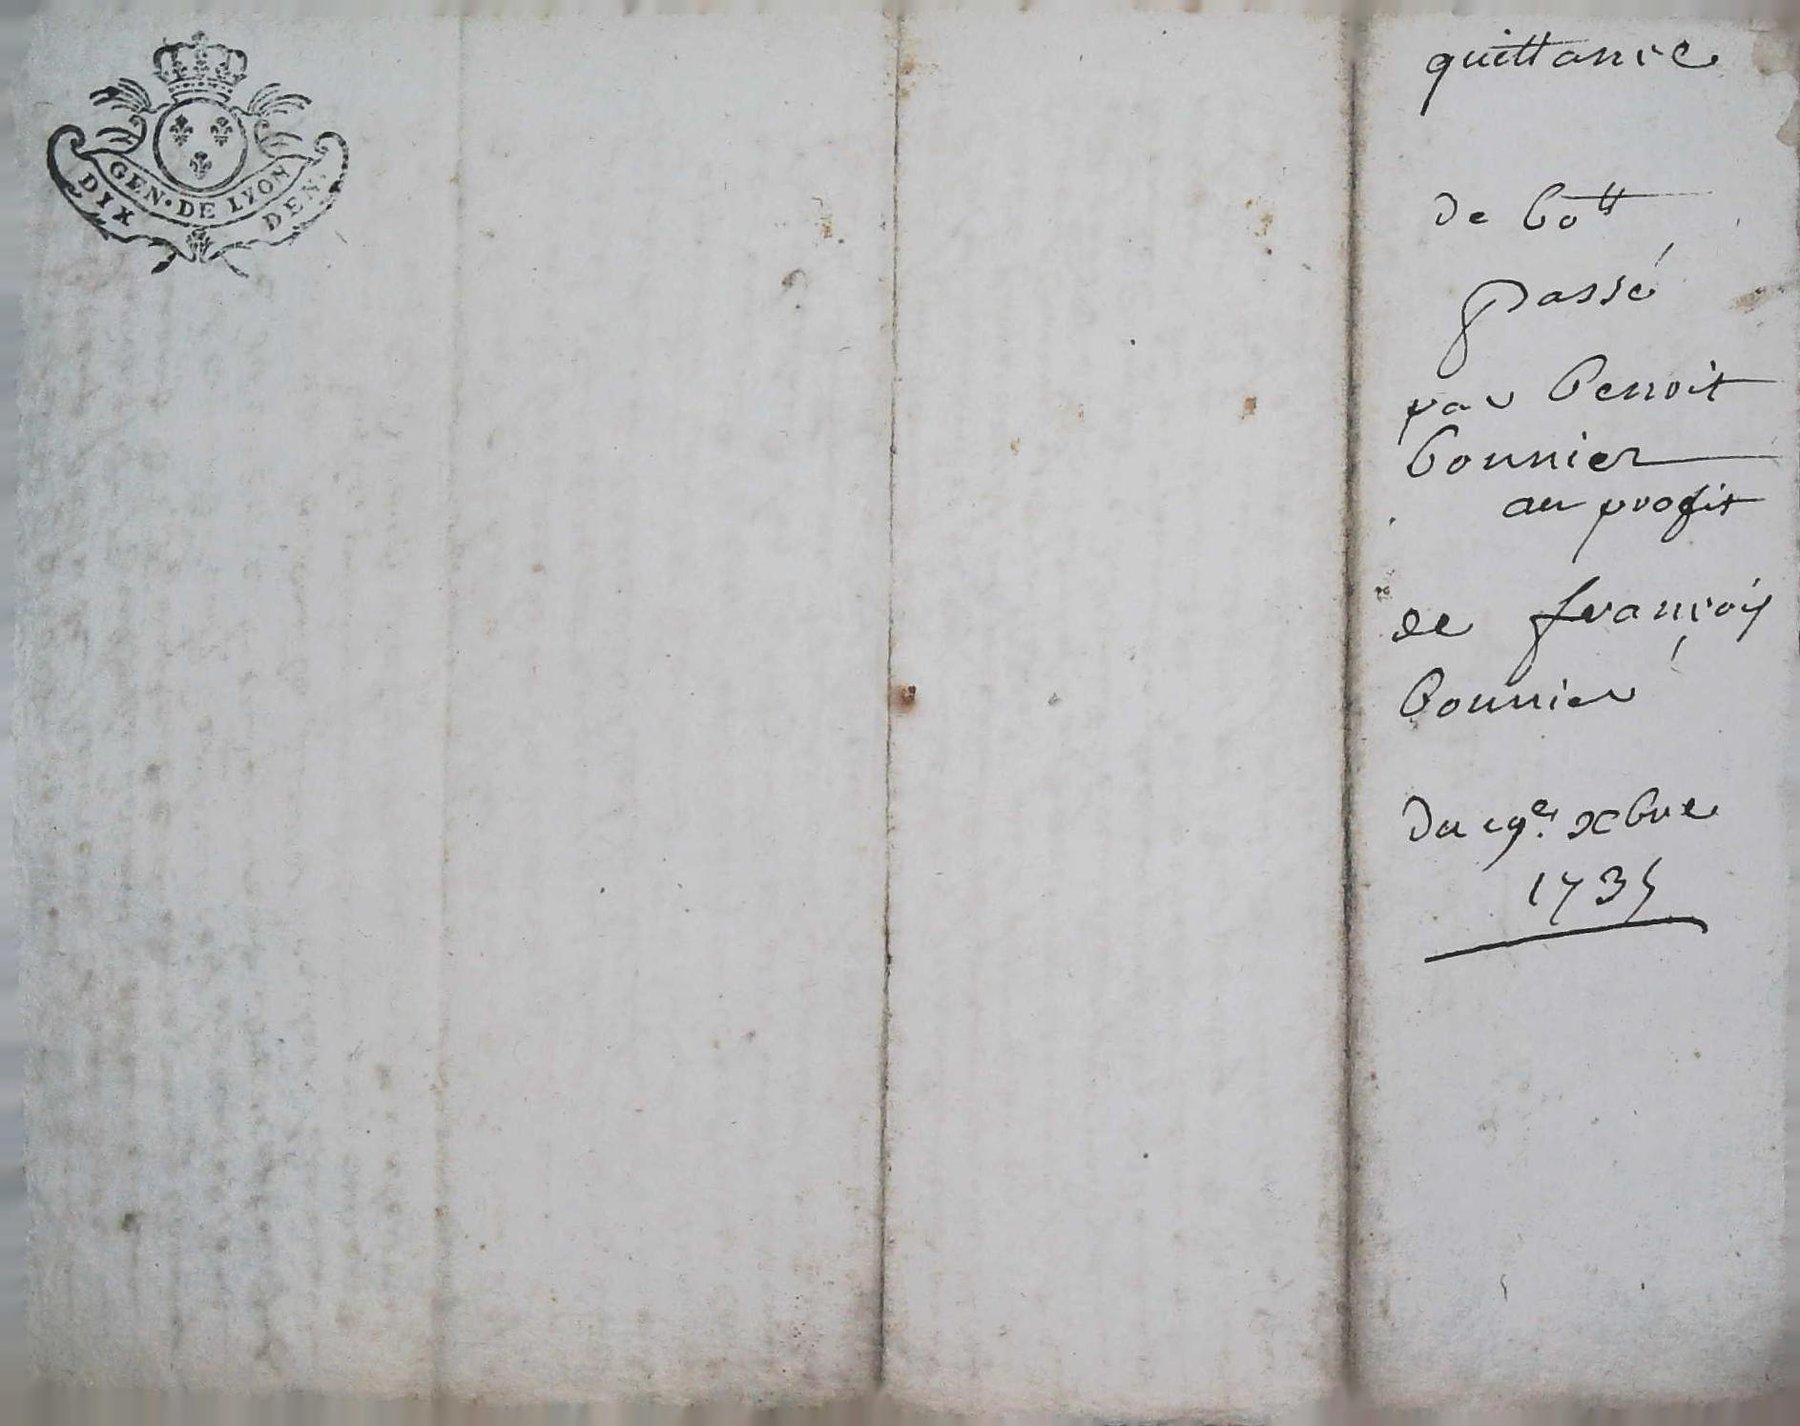 GEN. DE LYON
DIX DEN.
quittance
de 60tt
passé
par Benoit
Bonnier
au profit
de françois
Bonnier
Du 19e. xbre
1735